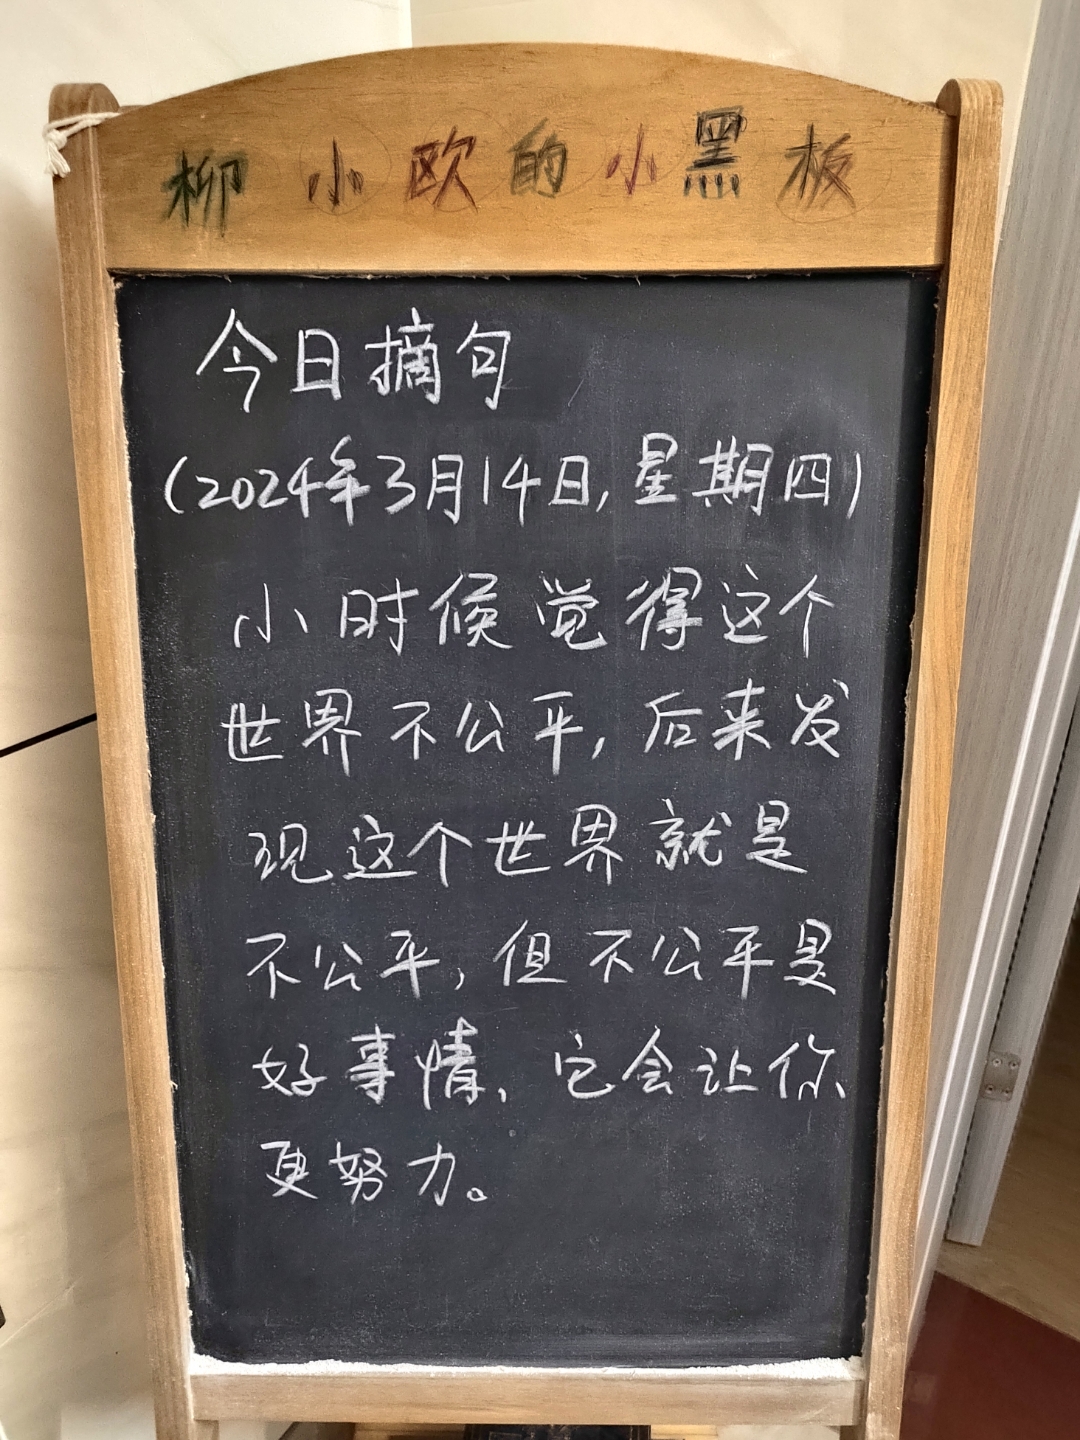 柳小欧的小黑板
今日摘句
(2024年3月14日,星期四)
小时候觉得这个
世界不公平,后来发
现这个世界就是
不公平,但不公平是
好事情、它会让你
更努力。